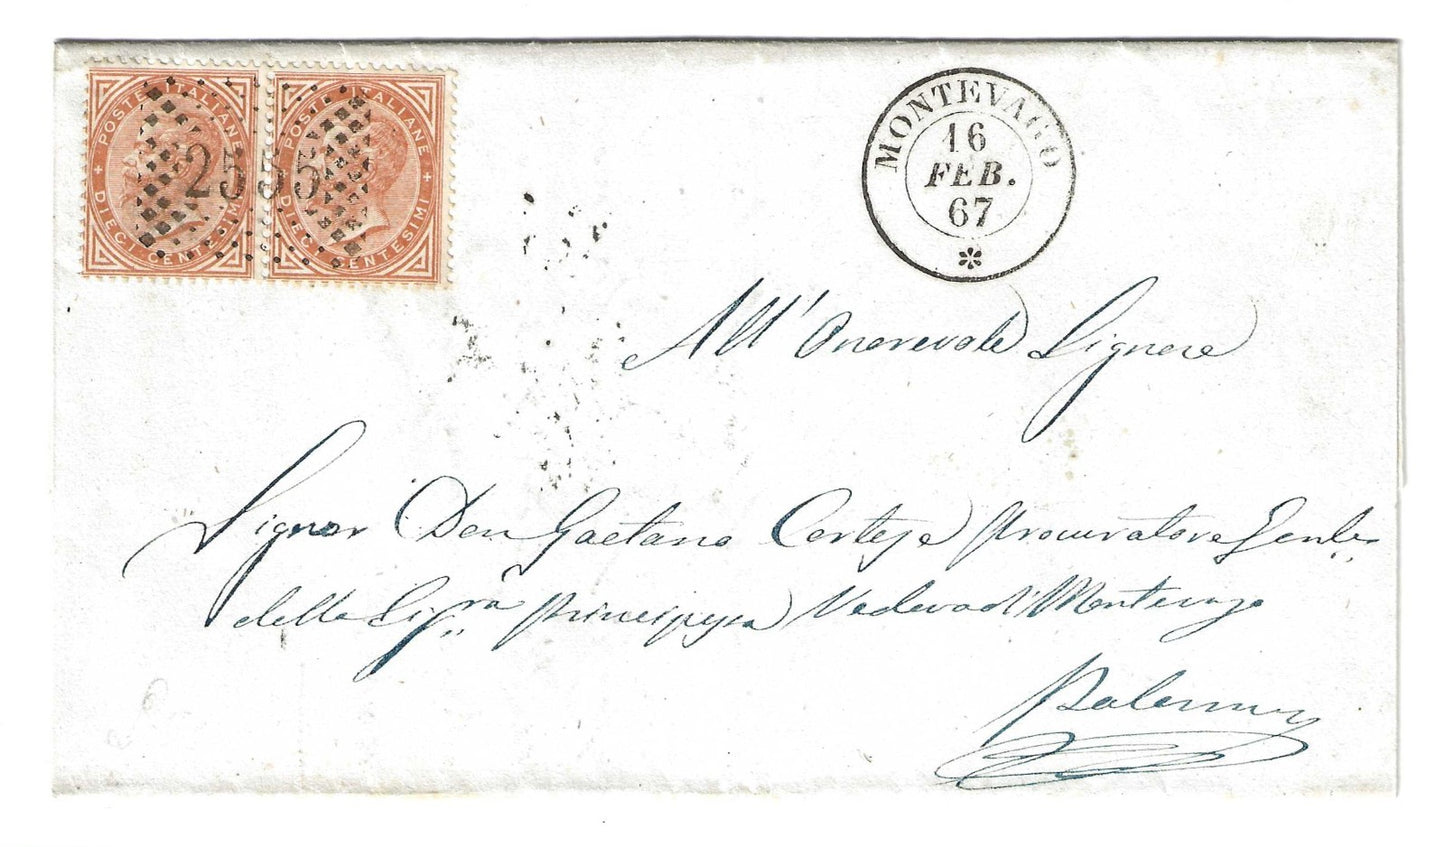 POSTE ITALIANE
DIECI CENTESIMI
POSTE ITALIANE
DIECI CENTESIMI
2555
MONTEVAGO
16
FEB.
67
All' Onorevole Signore
Signor Don Gaetano Cortese Procuratore Genle
della Sigra Principessa Vedova di Montevago
Palermo